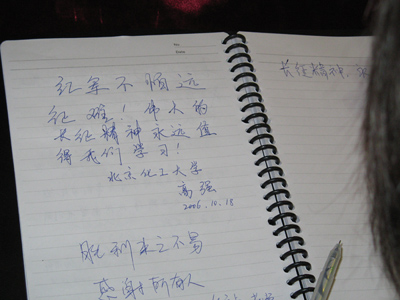 红军不怕远
征难！伟大的
长征精神永远值
得我们学习！
北京化工大学
高强
2006.10.18
胜利来之不易
感谢所有人
长征精神，